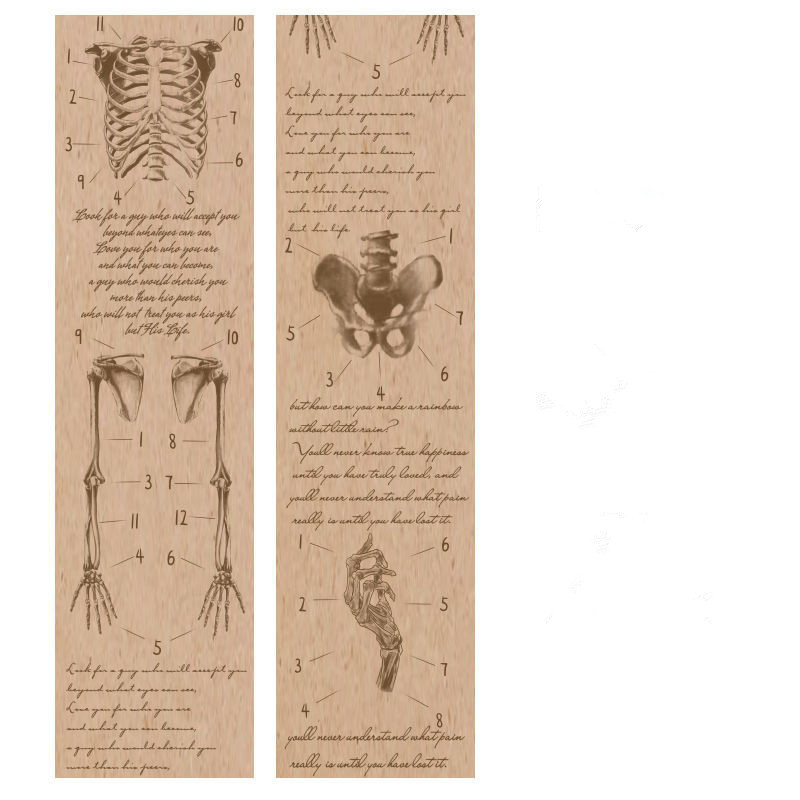 11 10
1 8
2 7
3 6
9 4 5
Look for a guy who will accept you
beyond whateyes can see,
Love you for who you are
and what you can become,
a guy who would cherish you
more than his peers,
who will not treat you as his girl
but His Life.
9 10
1 8
3 7
11 12
4 6
5
Look for a guy who will accept you
beyond what eyes can see,
Love you for who you are
and what you can become,
a guy who would cherish you
more than his peers,
5
Look for a guy who will accept you
beyond what eyes can see,
Love you for who you are
and what you can become,
a guy who would cherish you
more than his peers,
who will not treat you as his girl
but his life
2 1
5 7
3 4 6
but how can you make a rainbow
without little rain?
You'll never know true happiness
until you have truly loved, and
you'll never understand what pain
really is until you have lost it.
1 6
2 5
3 7
4 8
you'll never understand what pain
really is until you have lost it.